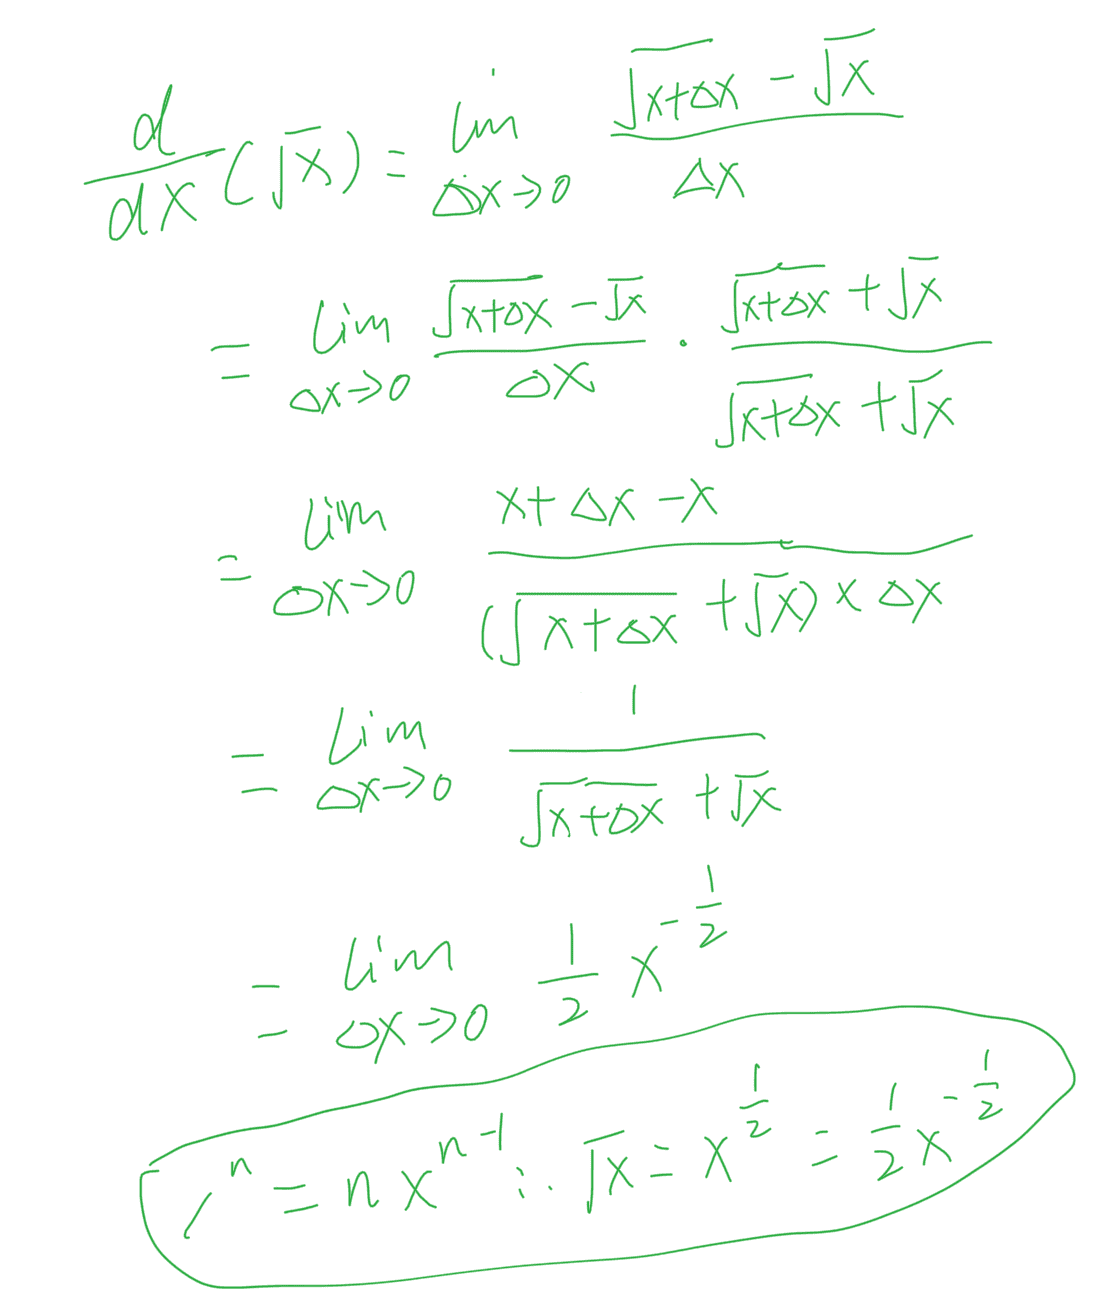 d/dx (√x) = lim Δx→0 (√(x+Δx) - √x) / Δx
= lim Δx→0 (√(x+Δx) - √x) / Δx · (√(x+Δx) + √x) / (√(x+Δx) + √x)
= lim Δx→0 (x+Δx-x) / ((√(x+Δx) + √x) × Δx)
= lim Δx→0 1 / (√(x+Δx) + √x)
= lim Δx→0 1/2 x^(-1/2)
^n = nx^(n-1) ∴ √x = x^(1/2) = 1/2 x^(-1/2)